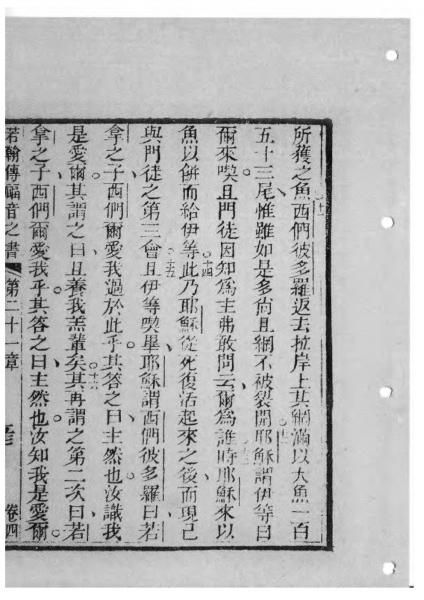 所獲之魚西們彼多羅返去拉岸上其網滿以大魚一百
五十三尾惟雖如是多尚且網不被裂開耶穌謂伊等曰
爾來喫且門徒因知為主弗敢問云爾為誰時耶穌來以
魚以餅而給伊等此乃耶穌從死復活起來之後而現己
與門徒之第三會且伊等喫畢耶穌謂西們彼多羅曰若
拿之子西們爾愛我過於此乎其答之曰主然也汝識我
是愛爾其謂之曰且養我羔輩矣其再謂之第二次曰若
拿之子西們爾愛我乎其答之曰主然也汝知我是愛爾
若翰傳福音之書 第二十一章 卷四